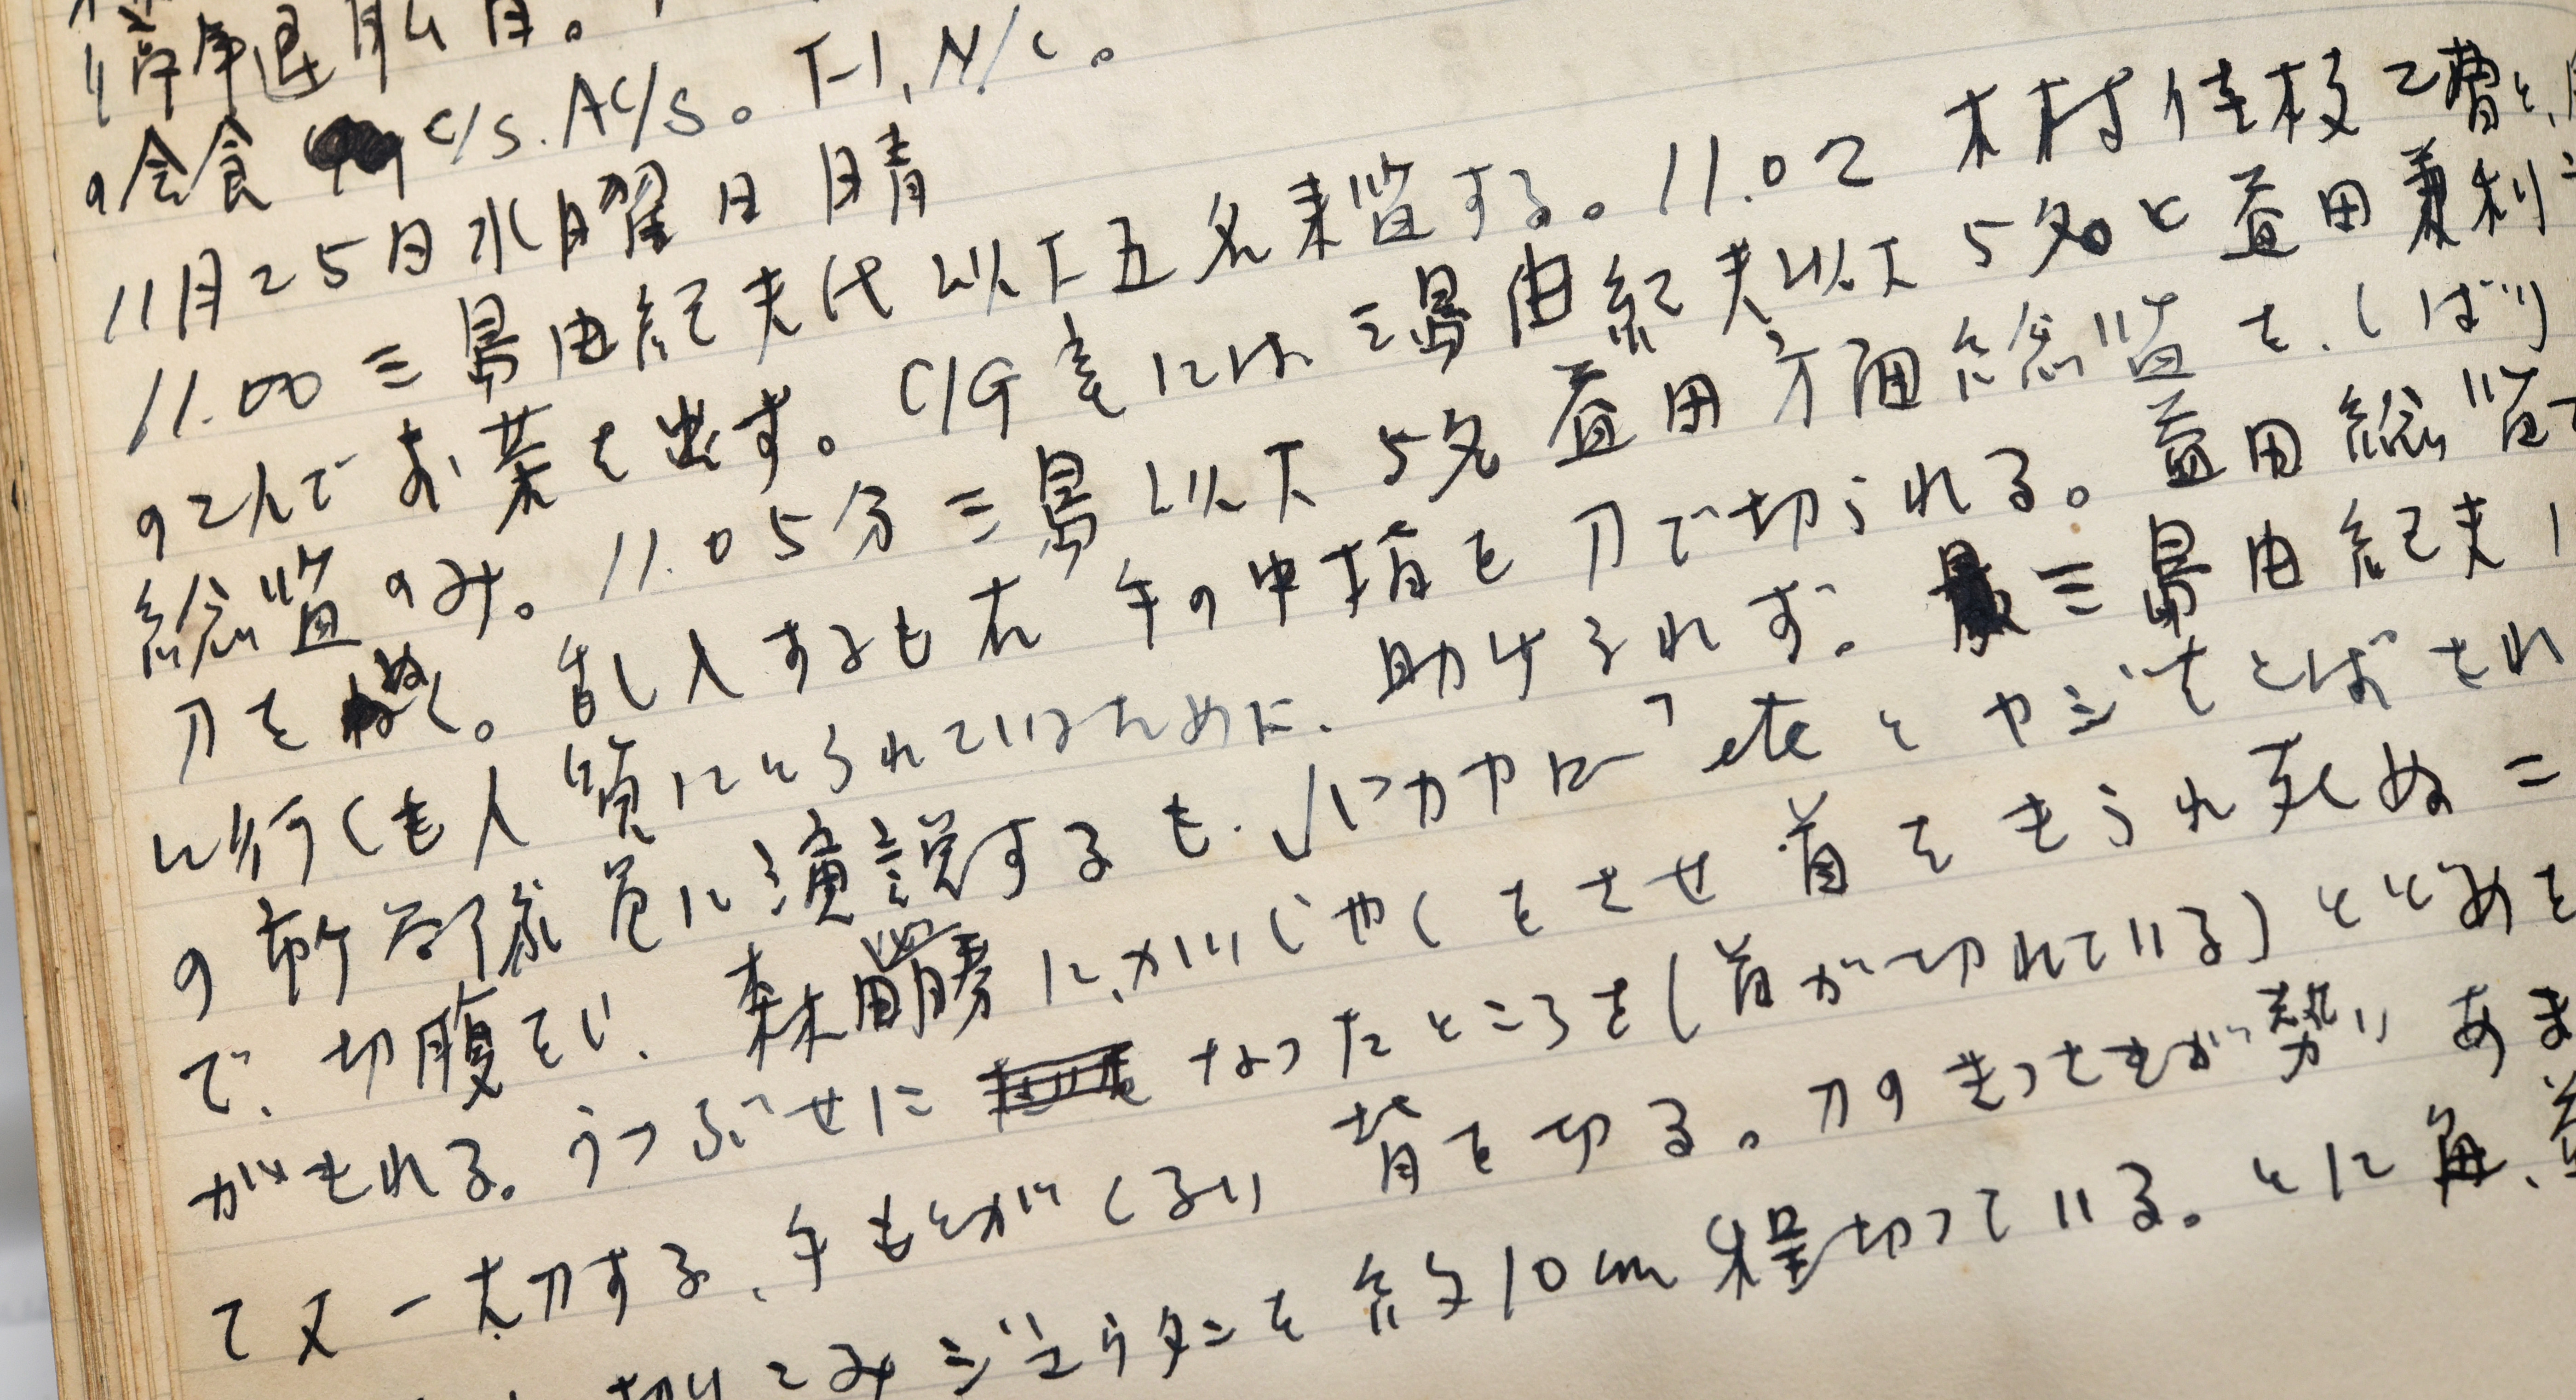 の会食 C/S. AC/S。T-1, N/C。
11月25日水曜日晴
11.00 三島由紀夫氏以下五名来監する。11.02 木村佳枝2曹と
の2人でお茶を出す。C/G室には三島由紀夫以下5名と益田兼利
総監のみ。11.05分三島以下5名益田方面総監を、しばり
刀をぬく。乱入するも右手の中指を刀で切られる。益田総監
に行くも人質にとられているために、助けられず。三島由紀夫
の市ヶ谷部隊員に演説するも、「バカヤロー」etcとヤジをとばされ
で、切腹をし、森田必勝に、かいしゃくをさせ首をきられ死ぬ
がきれる。うつぶせに なったところを(首が切れている)とどめを
て又一太刀する、手もとがくるい背を切る。刀のきっさきが勢いあま
切りこみジュウタンを約10cm程切っている。とに角、